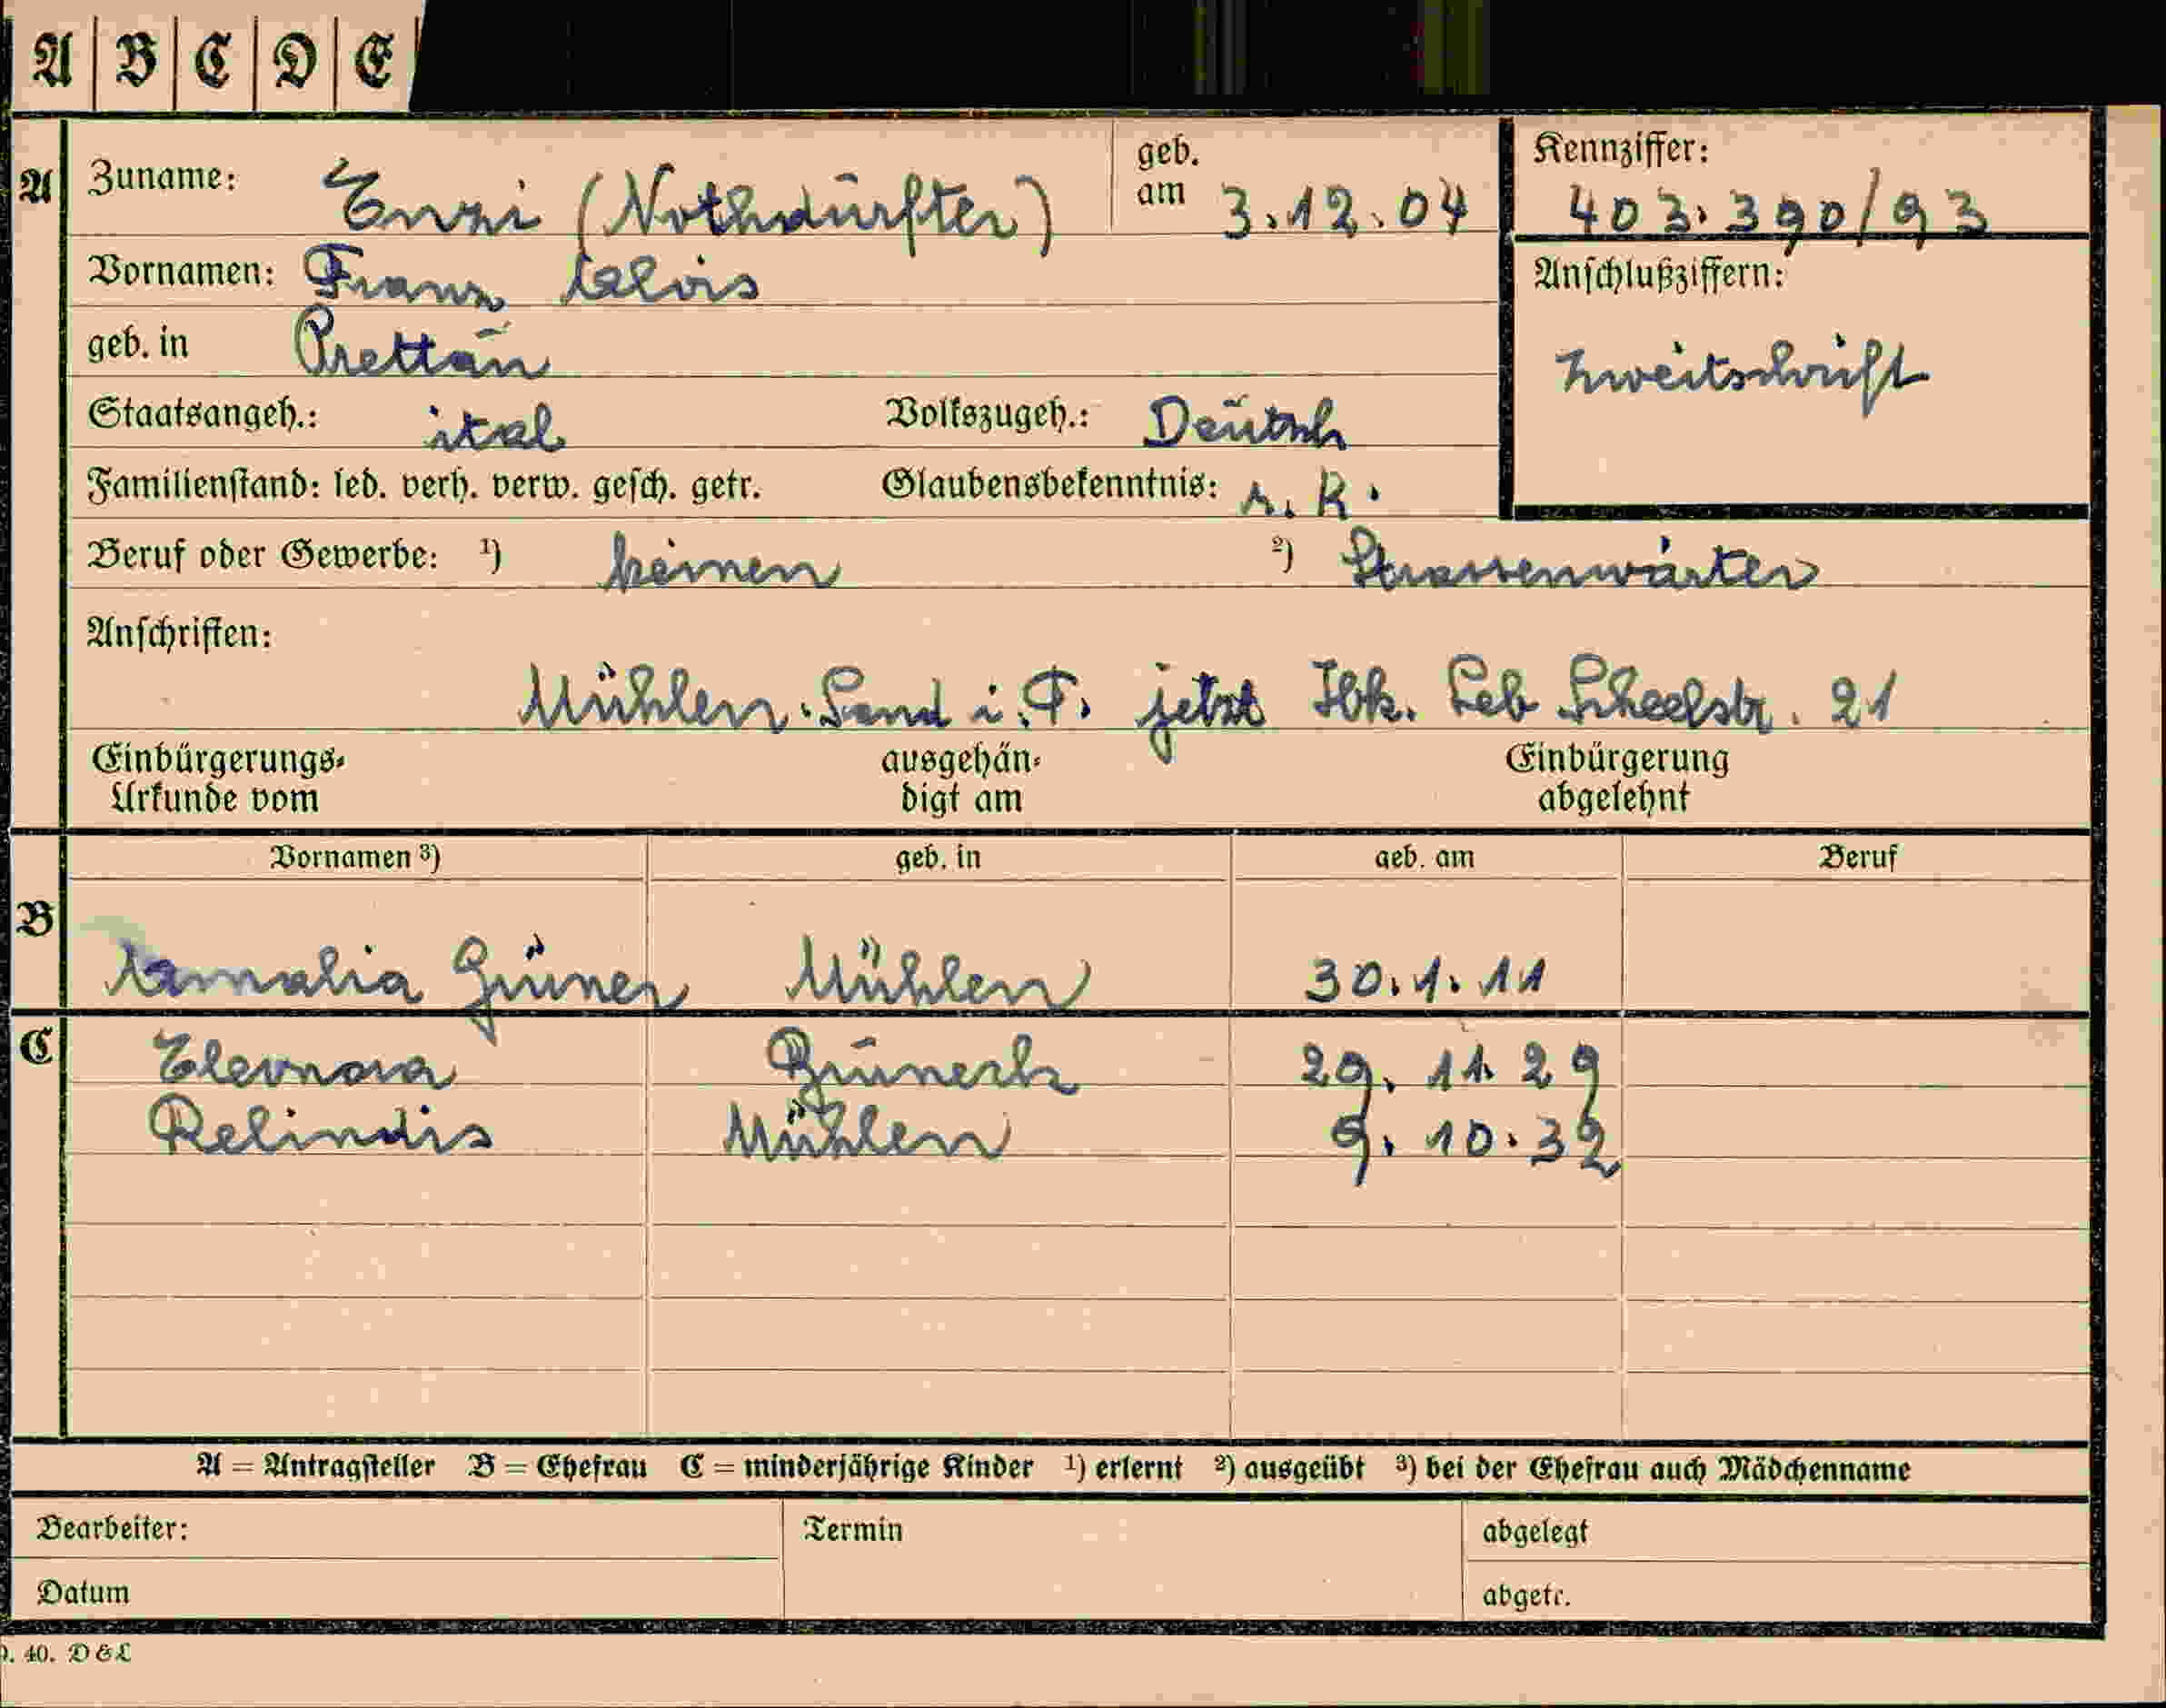 A B C D E
A Zuname: Enzi (Nothdürfter) geb. am 3.12.04 Kennziffer: 403.390/93
Vornamen: Franz Alois Anschlußziffern:
geb. in Prettau Zweitschrift
Staatsangeh.: ital Volkszugeh.: Deutsch
Familienstand: led. verh. verw. gesch. getr. Glaubensbekenntnis: r. k.
Beruf oder Gewerbe: ¹) keinen ²) Strassenwärter
Anschriften:
Mühlen. Sand i. T. jetzt Ibk. Seb Scheelstr. 21
Einbürgerungs-Urkunde vom ausgehändigt am Einbürgerung abgelehnt
Vornamen ³) geb. in geb. am Beruf
B Amalia Grüner Mühlen 30.1.11
C Eleonora Bruneck 29. 11. 29
Relindis Mühlen 9. 10. 32
A = Antragsteller B = Ehefrau C = minderjährige Kinder ¹) erlernt ²) ausgeübt ³) bei der Ehefrau auch Mädchenname
Bearbeiter: Termin abgelegt
Datum abgetr.
40. D & L